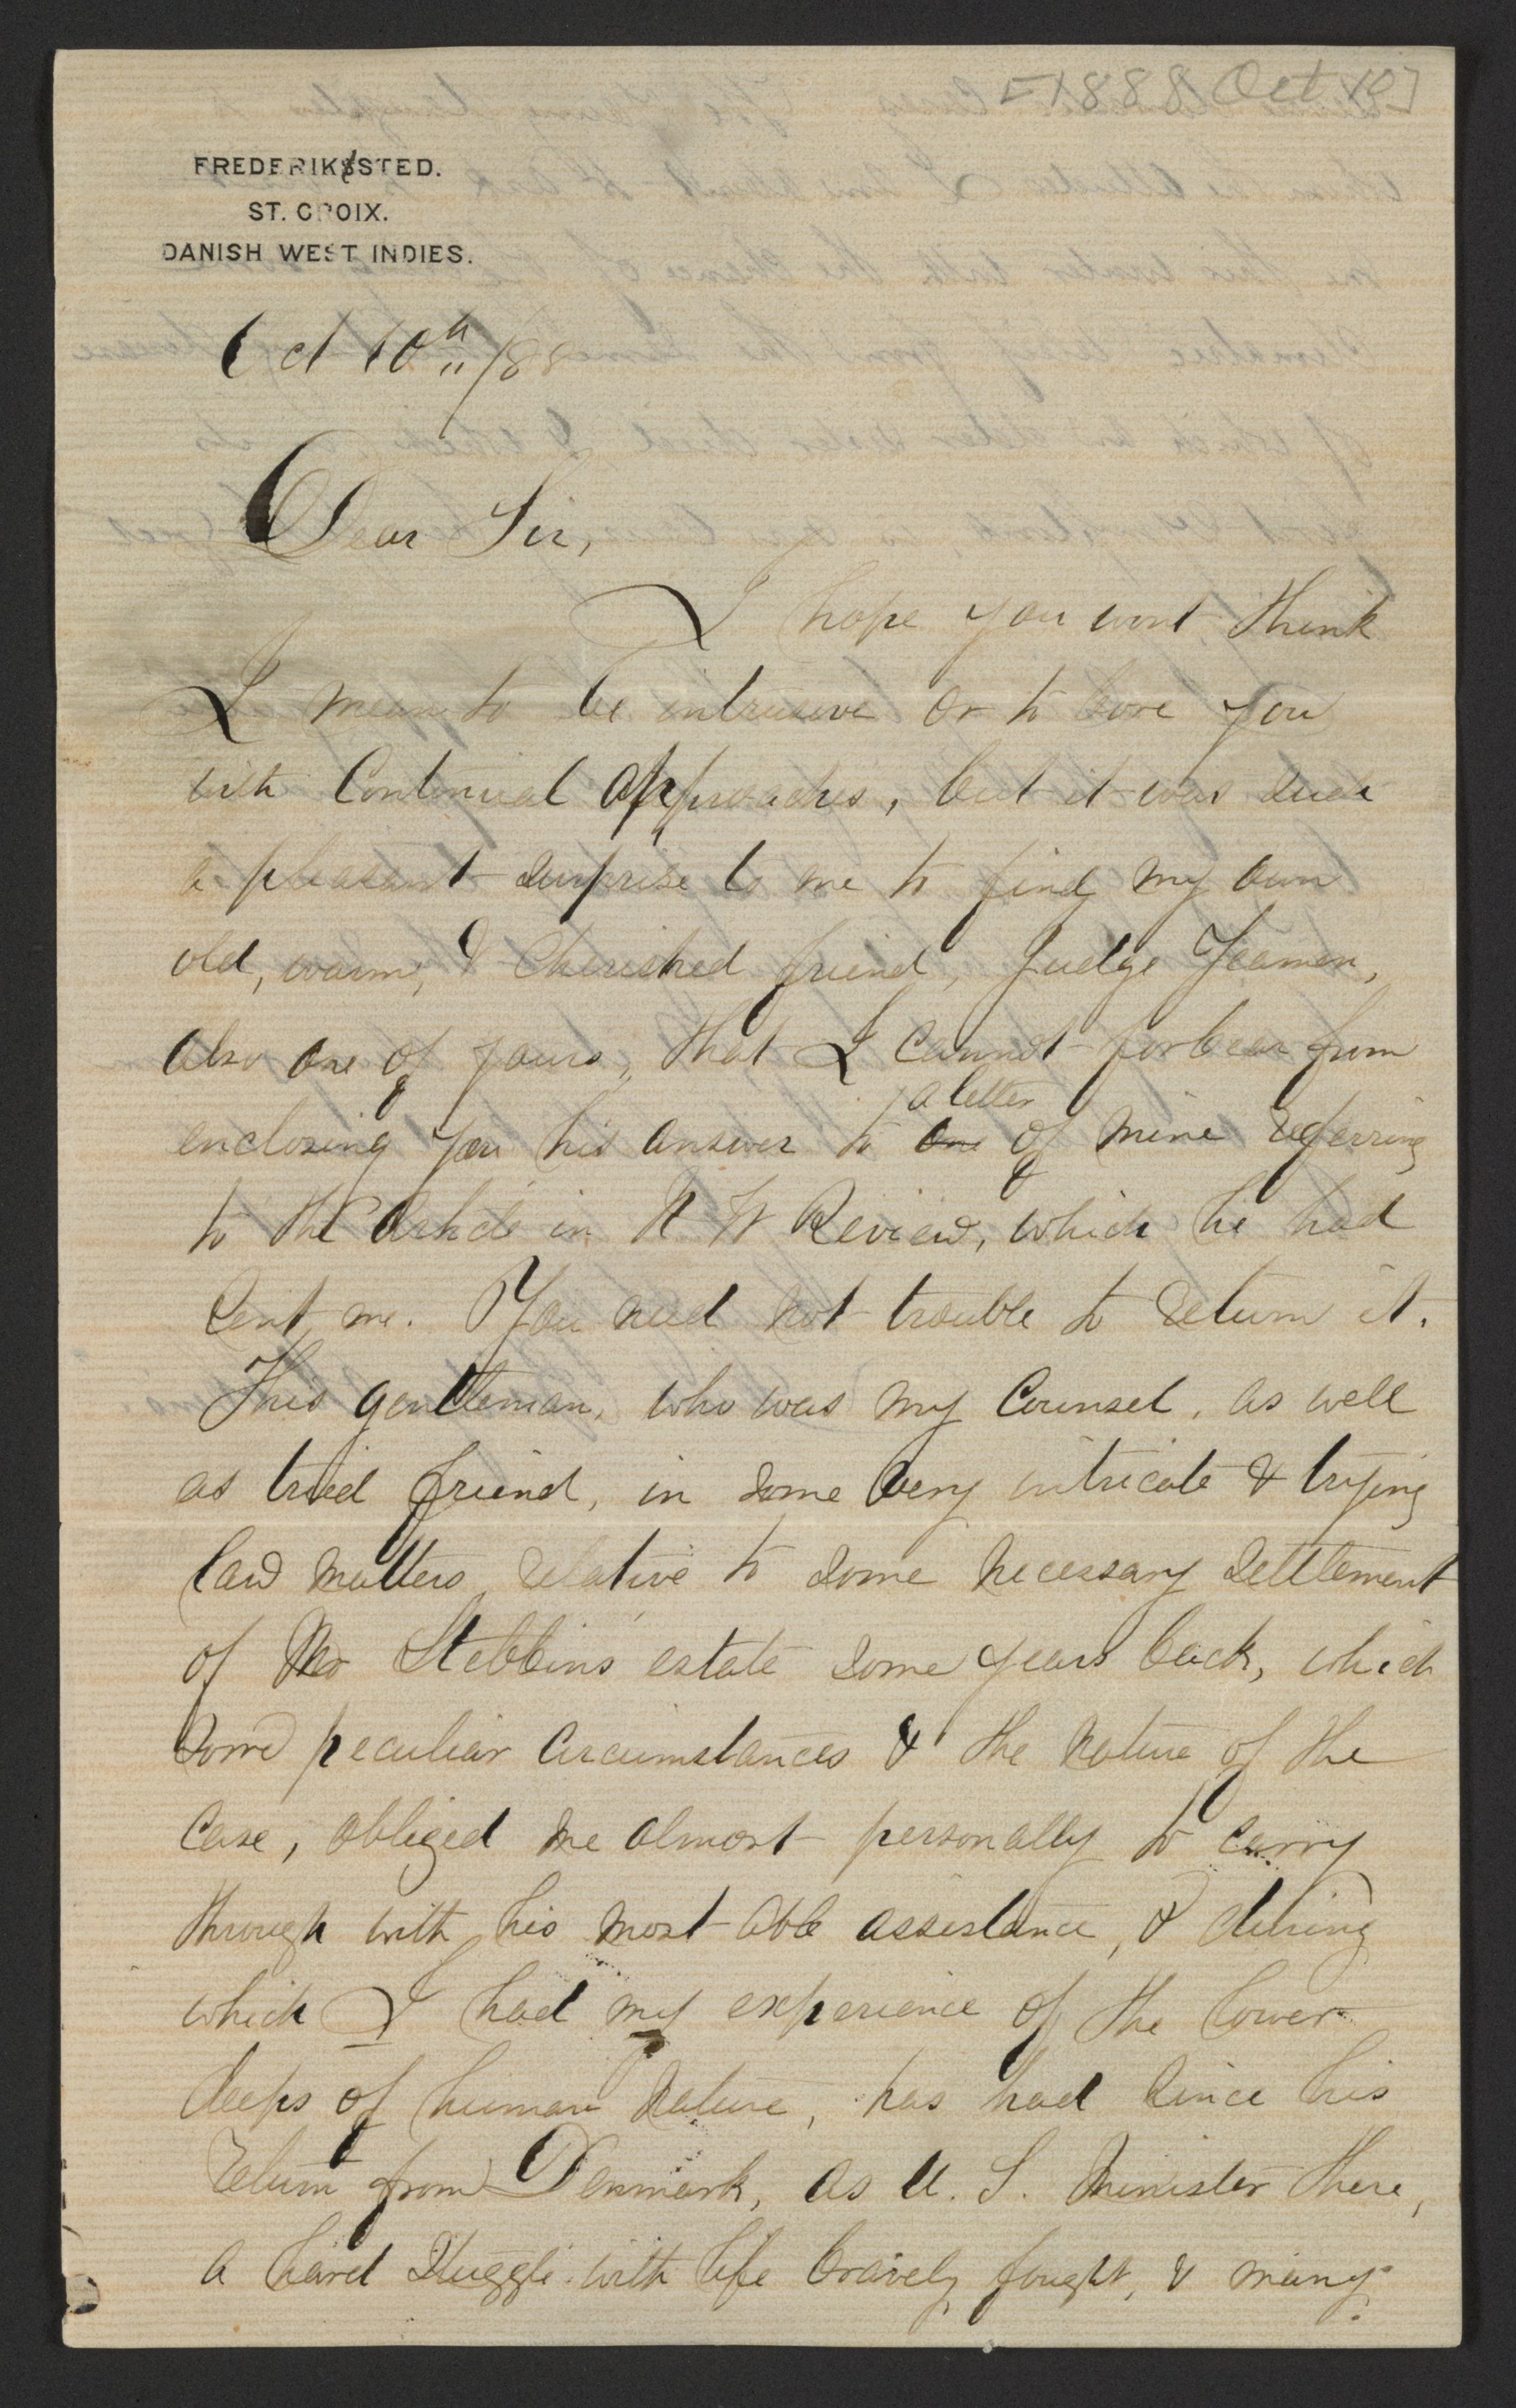 [1888 Oct 10]
FREDERIKSSTED.
ST. CROIX.
DANISH WEST INDIES.
Oct 10th /88
Dear Sir,
I hope you wont think
I mean to be intrusive or to bore you
with continual approaches, but it was such
a pleasant surprise to me to find my own
old, warm, & cherished friend, Judge Yeaman,
also one of yours, that I cannot forbear from
a letter
enclosing you his answer to one of mine referring
to the article in N A Review, which he had
sent me. You need not trouble to return it.
This gentleman, who was my Counsel, as well
as tried friend, in some very intricate & trying
law matters relative to some necessary settlement
of Mr Stebbins' estate some years back, which
some peculiar circumstances & the nature of the
case, obliged me almost personally to carry
through with his most able assistance, & during
which I had my experience of the lower
deeps of human nature, has had since his
return from Denmark, as U. S. Minister there,
a hard struggle with life bravely fought, & many